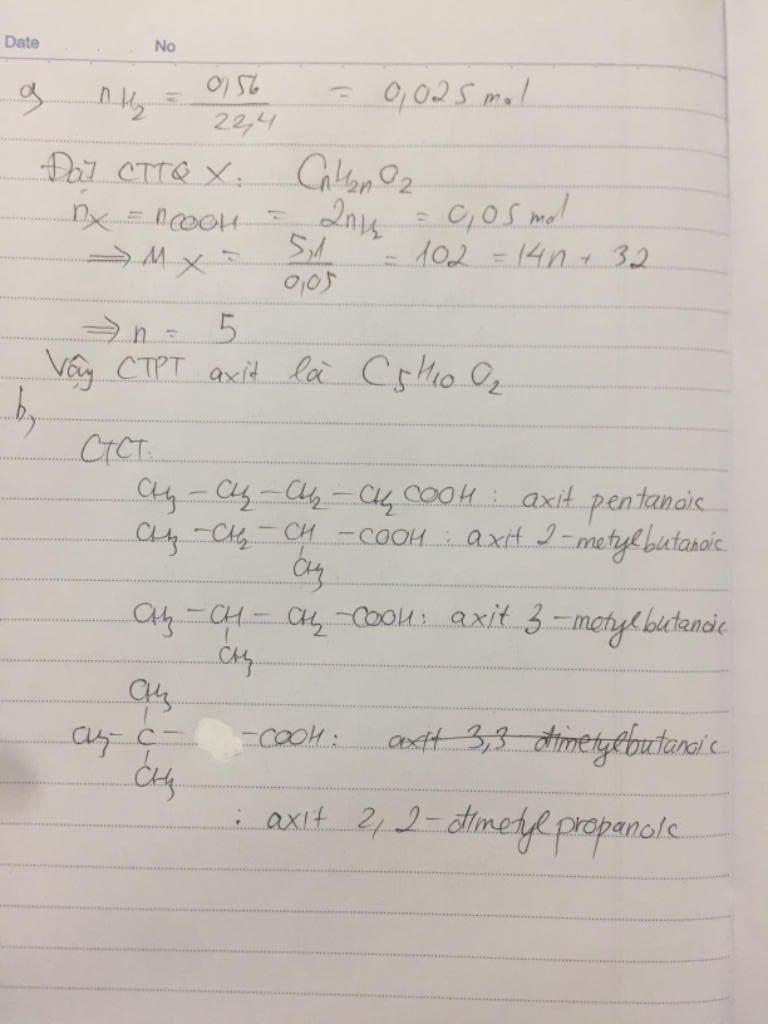 Date No
a, nH₂ = 0,56/22,4 = 0,025 mol
Đặt CTTQ X: CnH2nO2
nX = nCOOH = 2nH₂ = 0,05 mol
=> MX = 5,1/0,05 = 102 = 14n + 32
=> n = 5
Vậy CTPT axit là C5H10O2
b,
CTCT:
CH3 – CH2 – CH2 – CH2 COOH : axit pentanoic
CH3 – CH2 – CH – COOH : axit 2-metylbutanoic
CH3
CH3 – CH – CH2 – COOH : axit 3-metylbutanoic
CH3
CH3
CH3 – C – – COOH : axit 3,3 dimetylbutanoic
CH3
: axit 2,2-dimetyl propanoic